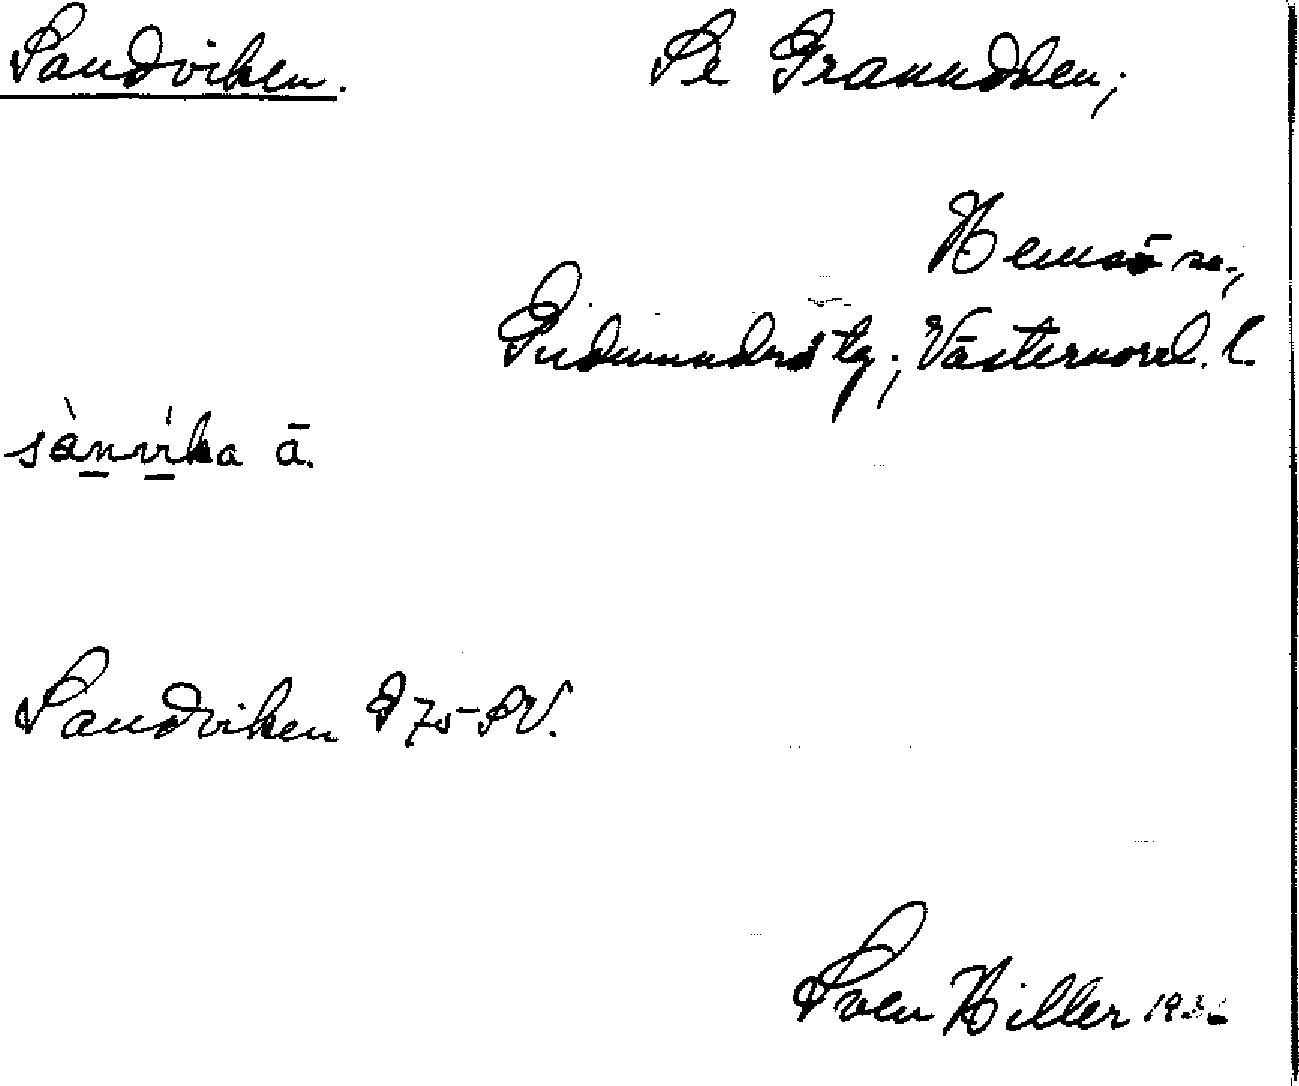 Sandviken. Se Granudden;
Hemsö sn.,
Gudmundrå tg.; Västernorrl. l.
sànvíka ā.
Sandviken I 75-SV.
Sven Hiller